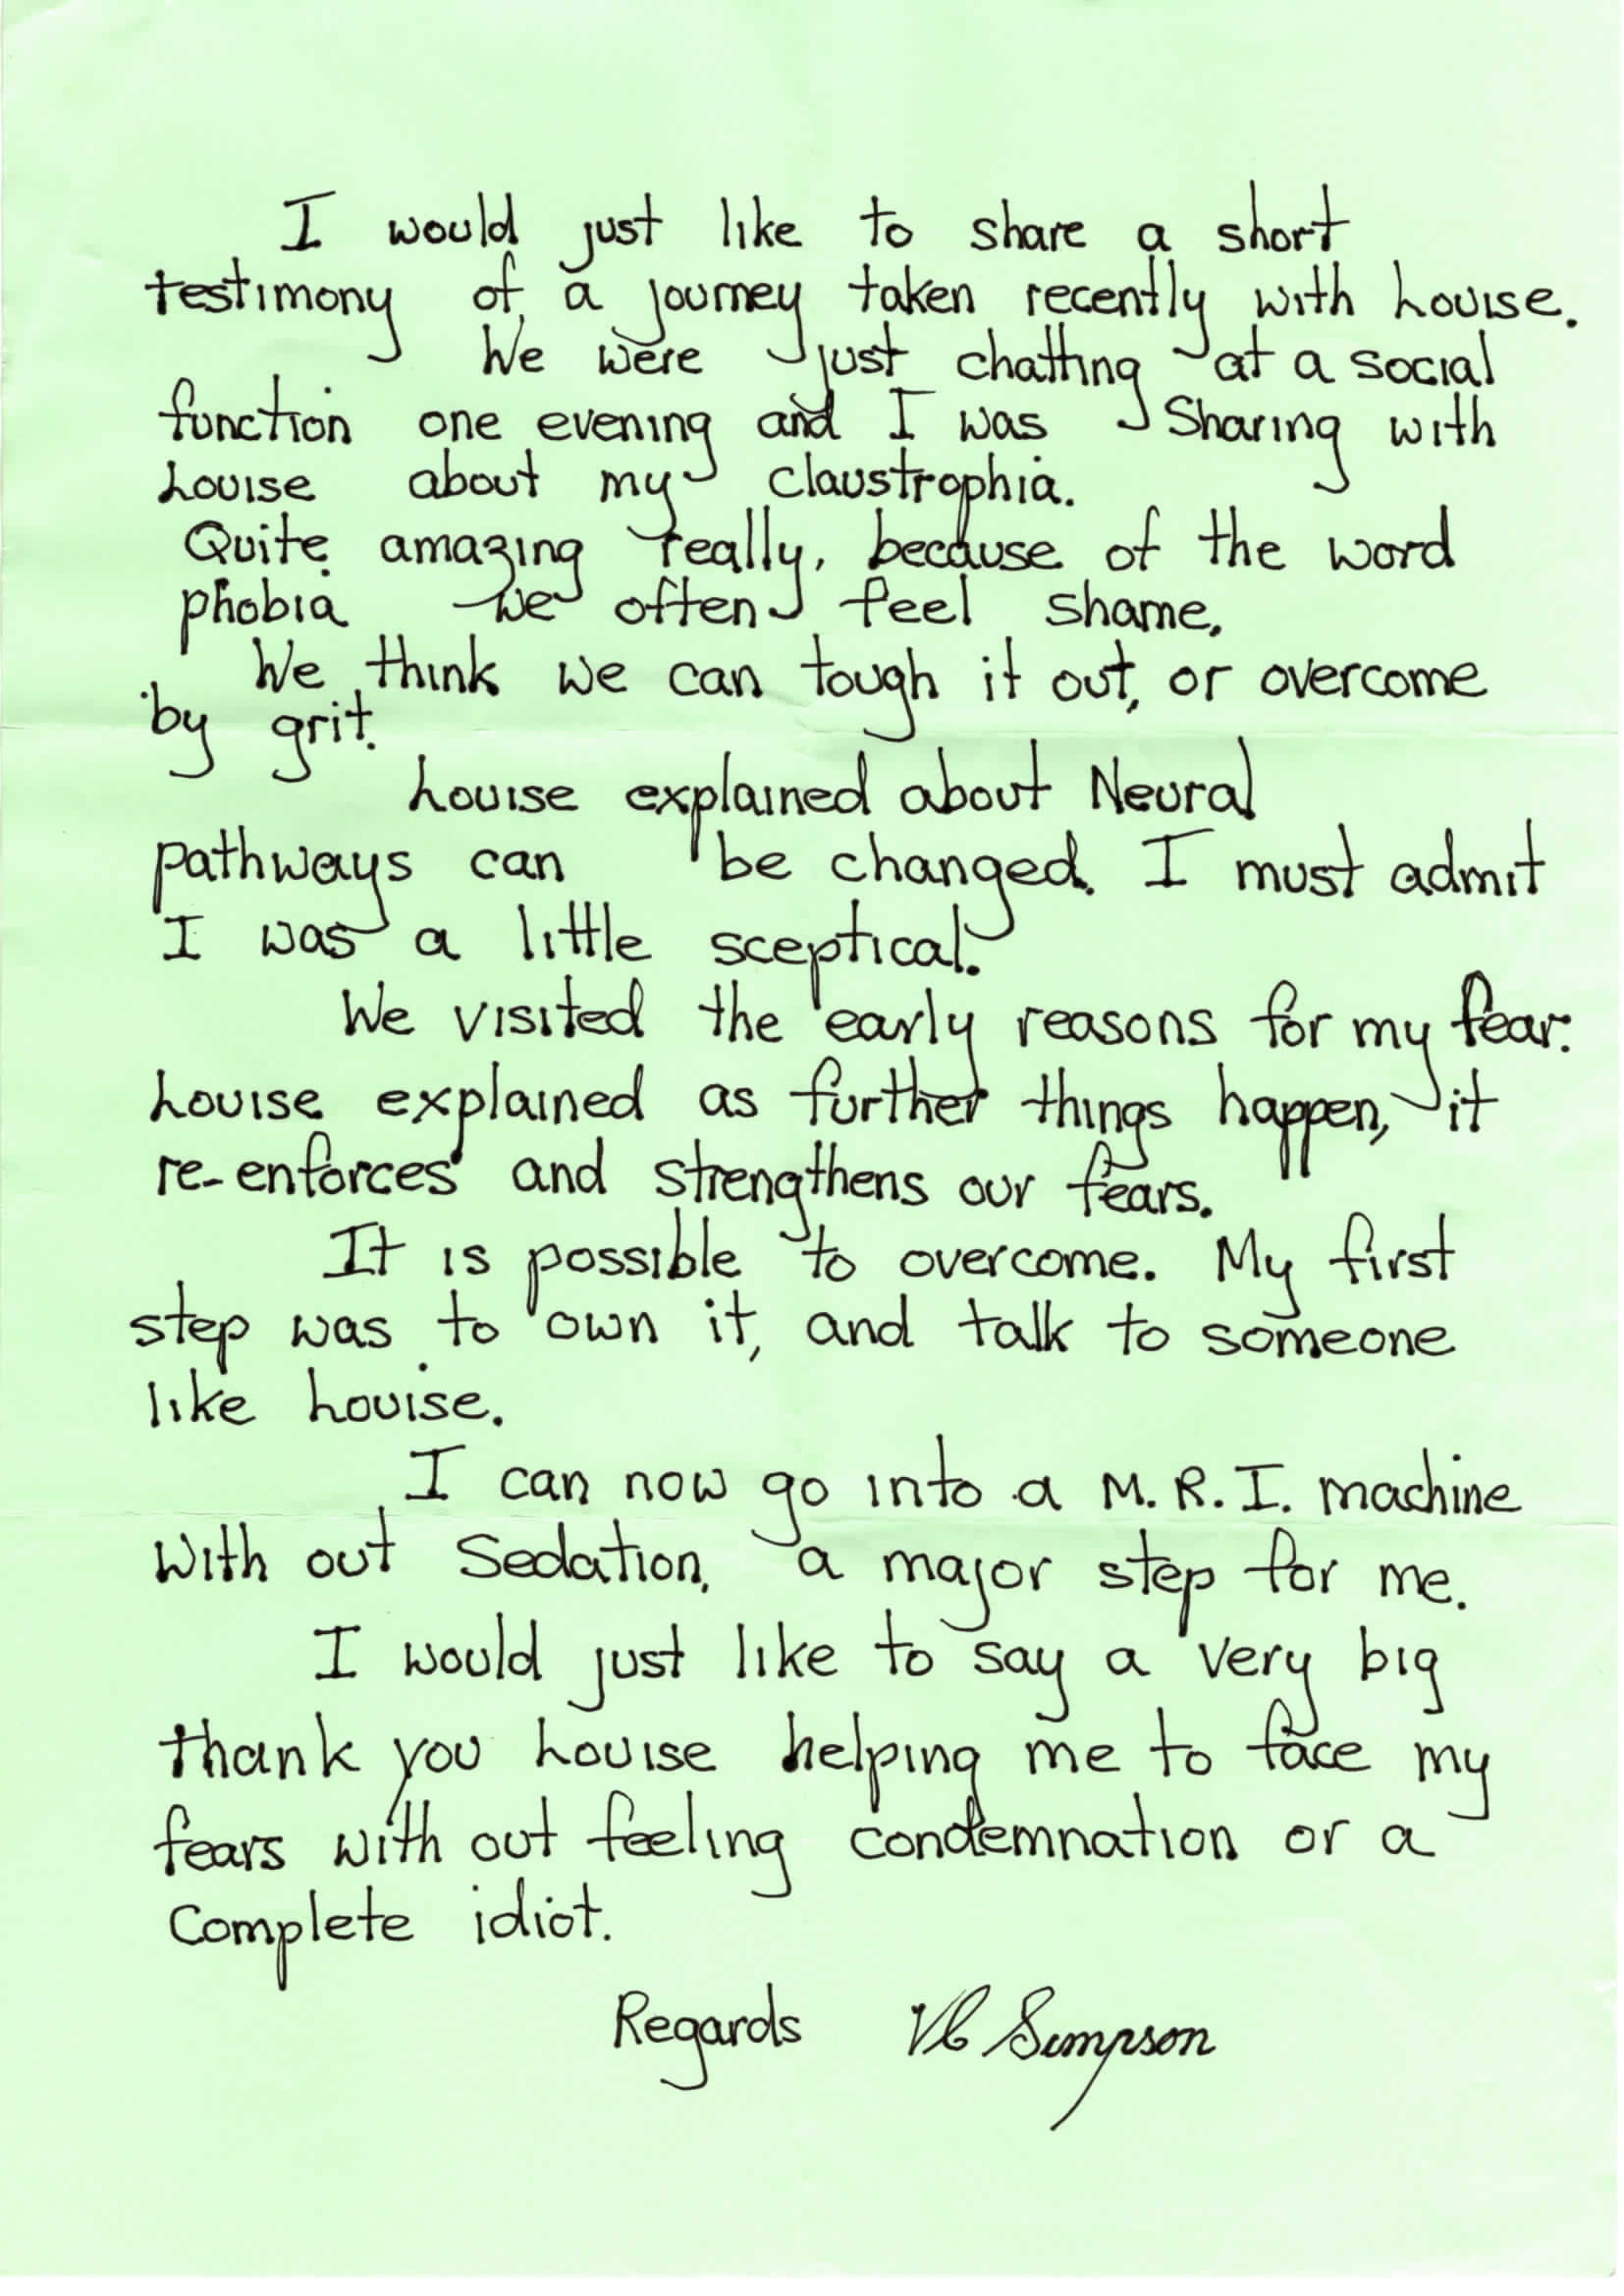 I would just like to share a short
testimony of a journey taken recently with Louise.
We were just chatting at a social
function one evening and I was Sharing with
Louise about my claustrophia.
Quite amazing really, because of the word
phobia we often feel shame.
We think we can tough it out, or overcome
by grit.
Louise explained about Neural
pathways can be changed. I must admit
I was a little sceptical.
We visited the early reasons for my fear.
Louise explained as further things happen, it
re-enforces and strengthens our fears.
It is possible to overcome. My first
step was to own it, and talk to someone
like Louise.
I can now go into a M.R.I. machine
with out Sedation, a major step for me.
I would just like to say a very big
thank you Louise helping me to face my
fears with out feeling condemnation or a
Complete idiot.
Regards VC Simpson